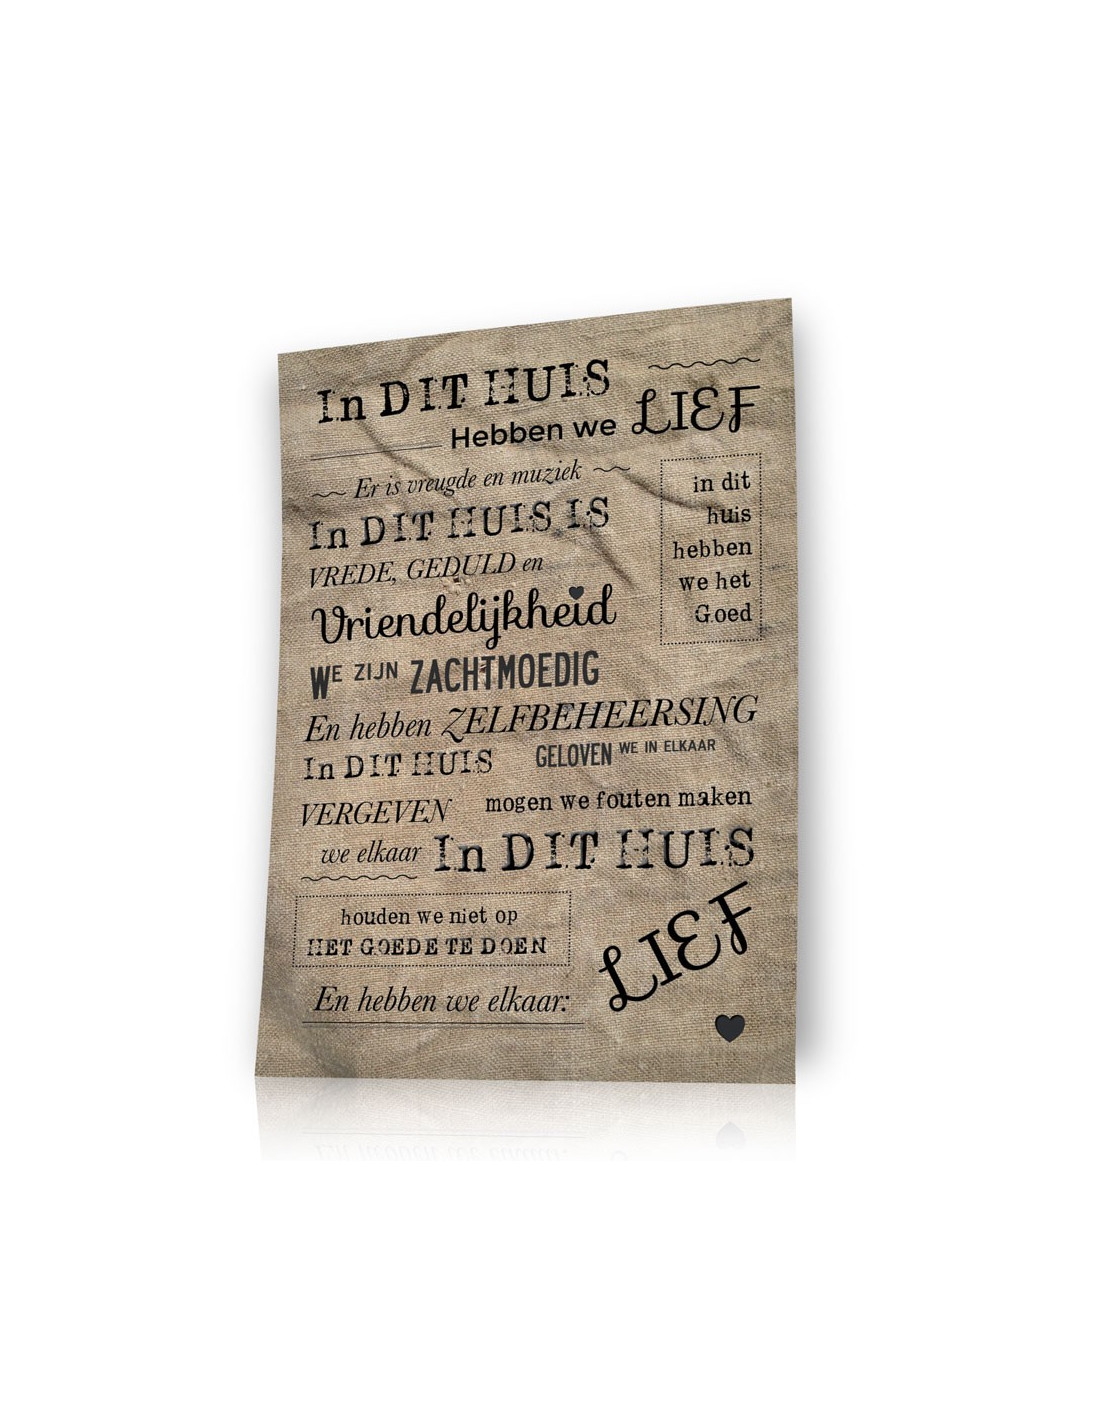 In DIT HUIS
Hebben we LIEF
Er is vreugde en muziek
In DIT HUIS IS
VREDE, GEDULD en
Vriendelijkheid
in dit
huis
hebben
we het
Goed
WE ZIJN ZACHTMOEDIG
En hebben ZELFBEHEERSING
In DIT HUIS GELOVEN WE IN ELKAAR
VERGEVEN mogen we fouten maken
we elkaar In DIT HUIS
houden we niet op
HET GOEDE TE DOEN
En hebben we elkaar:
LIEF